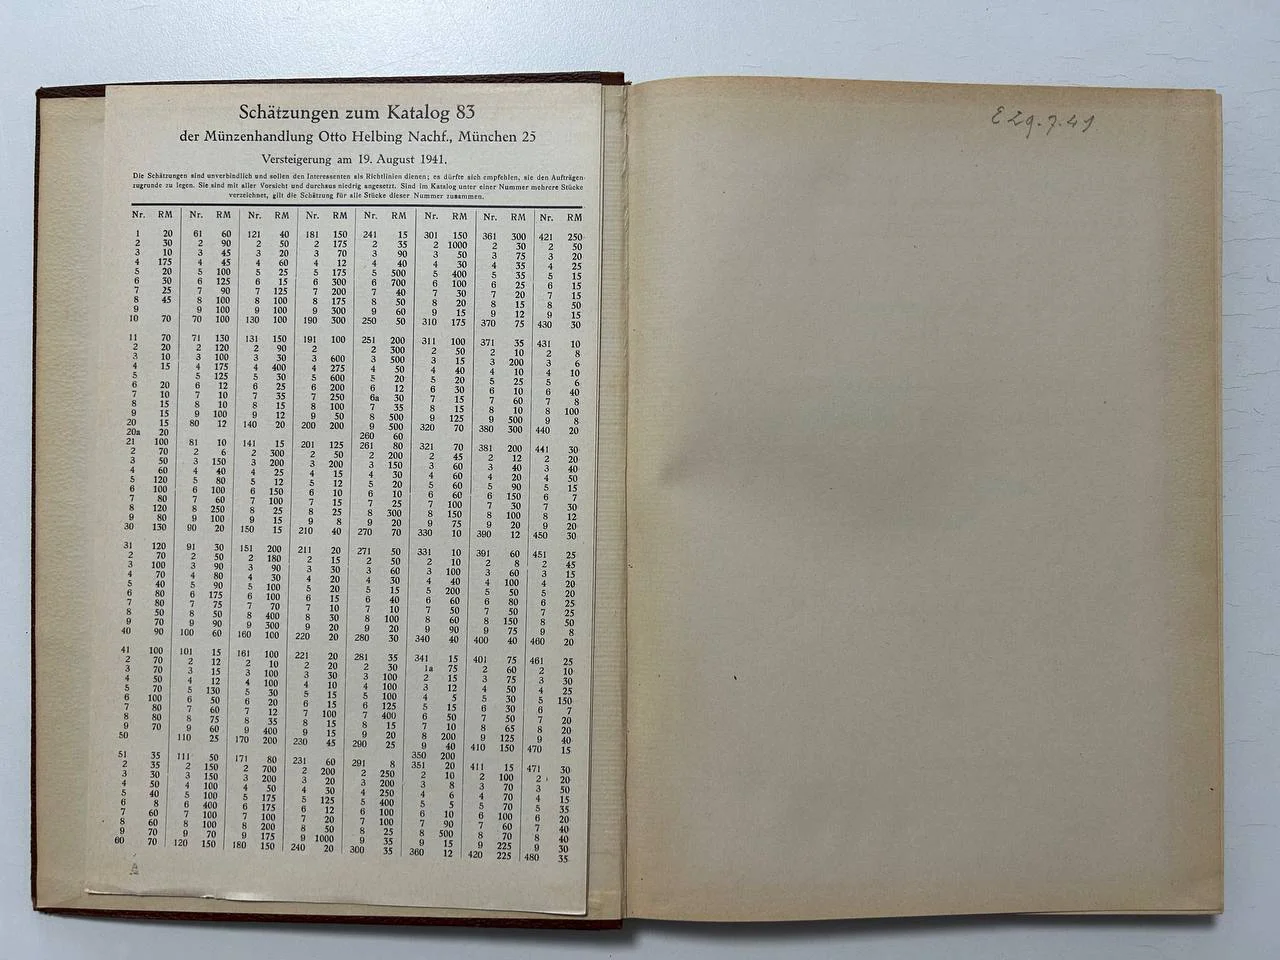 Schätzungen zum Katalog 83
der Münzenhandlung Otto Helbing Nachf., München 25
Versteigerung am 19. August 1941.
Die Schätzungen sind unverbindlich und sollen den Interessenten als Richtlinien dienen; es dürfte sich empfehlen, sie den Aufträgen
zugrunde zu legen. Sie sind mit aller Vorsicht und durchaus niedrig angesetzt. Sind im Katalog unter einer Nummer mehrere Stücke
verzeichnet, gilt die Schätzung für alle Stücke dieser Nummer zusammen.
Nr. RM Nr. RM Nr. RM Nr. RM Nr. RM Nr. RM Nr. RM Nr. RM
1 20 61 60 121 40 181 150 241 15 301 150 361 300 421 250
2 30 2 90 2 50 2 175 2 35 2 1000 2 30 2 50
3 10 3 45 3 20 3 70 3 90 3 50 3 75 3 20
4 175 4 45 4 60 4 12 4 40 4 30 4 35 4 25
5 20 5 100 5 25 5 175 5 500 5 400 5 35 5 15
6 30 6 125 6 15 6 300 6 700 6 100 6 25 6 15
7 25 7 90 7 125 7 200 7 40 7 30 7 20 7 15
8 45 8 100 8 100 8 175 8 50 8 20 8 15 8 50
9 9 100 9 100 9 300 9 60 9 15 9 12 9 15
10 70 70 100 130 100 190 300 250 50 310 175 370 75 430 30
11 70 71 130 131 150 191 100 251 200 311 100 371 35 431 10
2 20 2 120 2 90 2 2 300 2 50 2 10 2 8
3 10 3 100 3 30 3 600 3 500 3 15 3 200 3 6
4 15 4 175 4 400 4 275 4 50 4 40 4 10 4 10
5 5 125 5 30 5 600 5 20 5 20 5 25 5 6
6 20 6 12 6 25 6 200 6 12 6 30 6 10 6 40
7 10 7 10 7 35 7 250 6a 30 7 15 7 60 7 8
8 15 8 10 8 15 8 100 7 35 8 15 8 10 8 100
9 15 9 100 9 12 9 50 8 500 9 125 9 500 9 8
20 15 80 12 140 20 200 200 9 500 320 70 380 300 440 20
20a 20 260 60
21 100 81 10 141 15 201 125 261 80 321 70 381 200 441 30
2 70 2 6 2 300 2 50 2 200 2 45 2 12 2 20
3 50 3 150 3 200 3 200 3 150 3 60 3 40 3 40
4 60 4 40 4 25 4 15 4 30 4 60 4 20 4 50
5 120 5 80 5 12 5 12 5 20 5 60 5 90 5 15
6 100 6 100 6 150 6 10 6 10 6 60 6 150 6 7
7 80 7 60 7 100 7 15 7 25 7 100 7 30 7 30
8 120 8 250 8 25 8 25 8 300 8 150 8 100 8 12
9 80 9 100 9 15 9 8 9 20 9 75 9 20 9 20
30 130 90 20 150 15 210 40 270 70 330 10 390 12 450 30
31 120 91 30 151 200 211 20 271 50 331 10 391 60 451 25
2 70 2 50 2 180 2 15 2 50 2 10 2 8 2 45
3 100 3 90 3 90 3 30 3 60 3 100 3 60 3 15
4 70 4 80 4 30 4 20 4 30 4 40 4 100 4 20
5 40 5 90 5 100 5 20 5 15 5 200 5 50 5 20
6 80 6 175 6 100 6 15 6 40 6 60 6 80 6 25
7 80 7 75 7 70 7 10 7 10 7 50 7 50 7 25
8 50 8 50 8 400 8 30 8 100 8 60 8 150 8 50
9 70 9 90 9 300 9 20 9 20 9 90 9 75 9 8
40 90 100 60 160 100 220 20 280 30 340 40 400 40 460 20
41 100 101 15 161 100 221 20 281 35 341 15 401 75 461 25
2 70 2 12 2 10 2 20 2 30 1a 75 2 60 2 10
3 70 3 15 3 100 3 30 3 100 2 15 3 75 3 30
4 50 4 12 4 100 4 10 4 100 3 12 4 50 4 25
5 70 5 130 5 30 5 15 5 100 4 5 5 30 5 150
6 100 6 50 6 20 6 15 6 125 5 15 6 30 6 7
7 80 7 60 7 12 7 100 7 400 6 50 7 50 7 20
8 80 8 75 8 35 8 15 8 15 7 10 8 65 8 20
9 70 9 60 9 400 9 15 9 20 8 200 9 125 9 40
50 110 25 170 200 230 45 290 25 9 40 410 150 470 15
350 200
51 35 111 50 171 80 231 60 291 8 351 20 411 15 471 30
2 35 2 150 2 700 2 200 2 250 2 10 2 100 2 20
3 30 3 150 3 200 3 20 3 200 3 8 3 70 3 50
4 50 4 100 4 50 4 30 4 250 4 6 4 70 4 15
5 40 5 100 5 175 5 125 5 400 5 5 5 70 5 35
6 8 6 400 6 175 6 12 6 100 6 10 6 100 6 20
7 60 7 100 7 100 7 20 7 100 7 90 7 60 7 40
8 60 8 100 8 200 8 50 8 25 8 500 8 70 8 40
9 70 9 70 9 175 9 1000 9 35 9 15 9 225 9 30
60 70 120 150 180 150 240 20 300 35 360 12 420 225 480 35
E 29.7.41